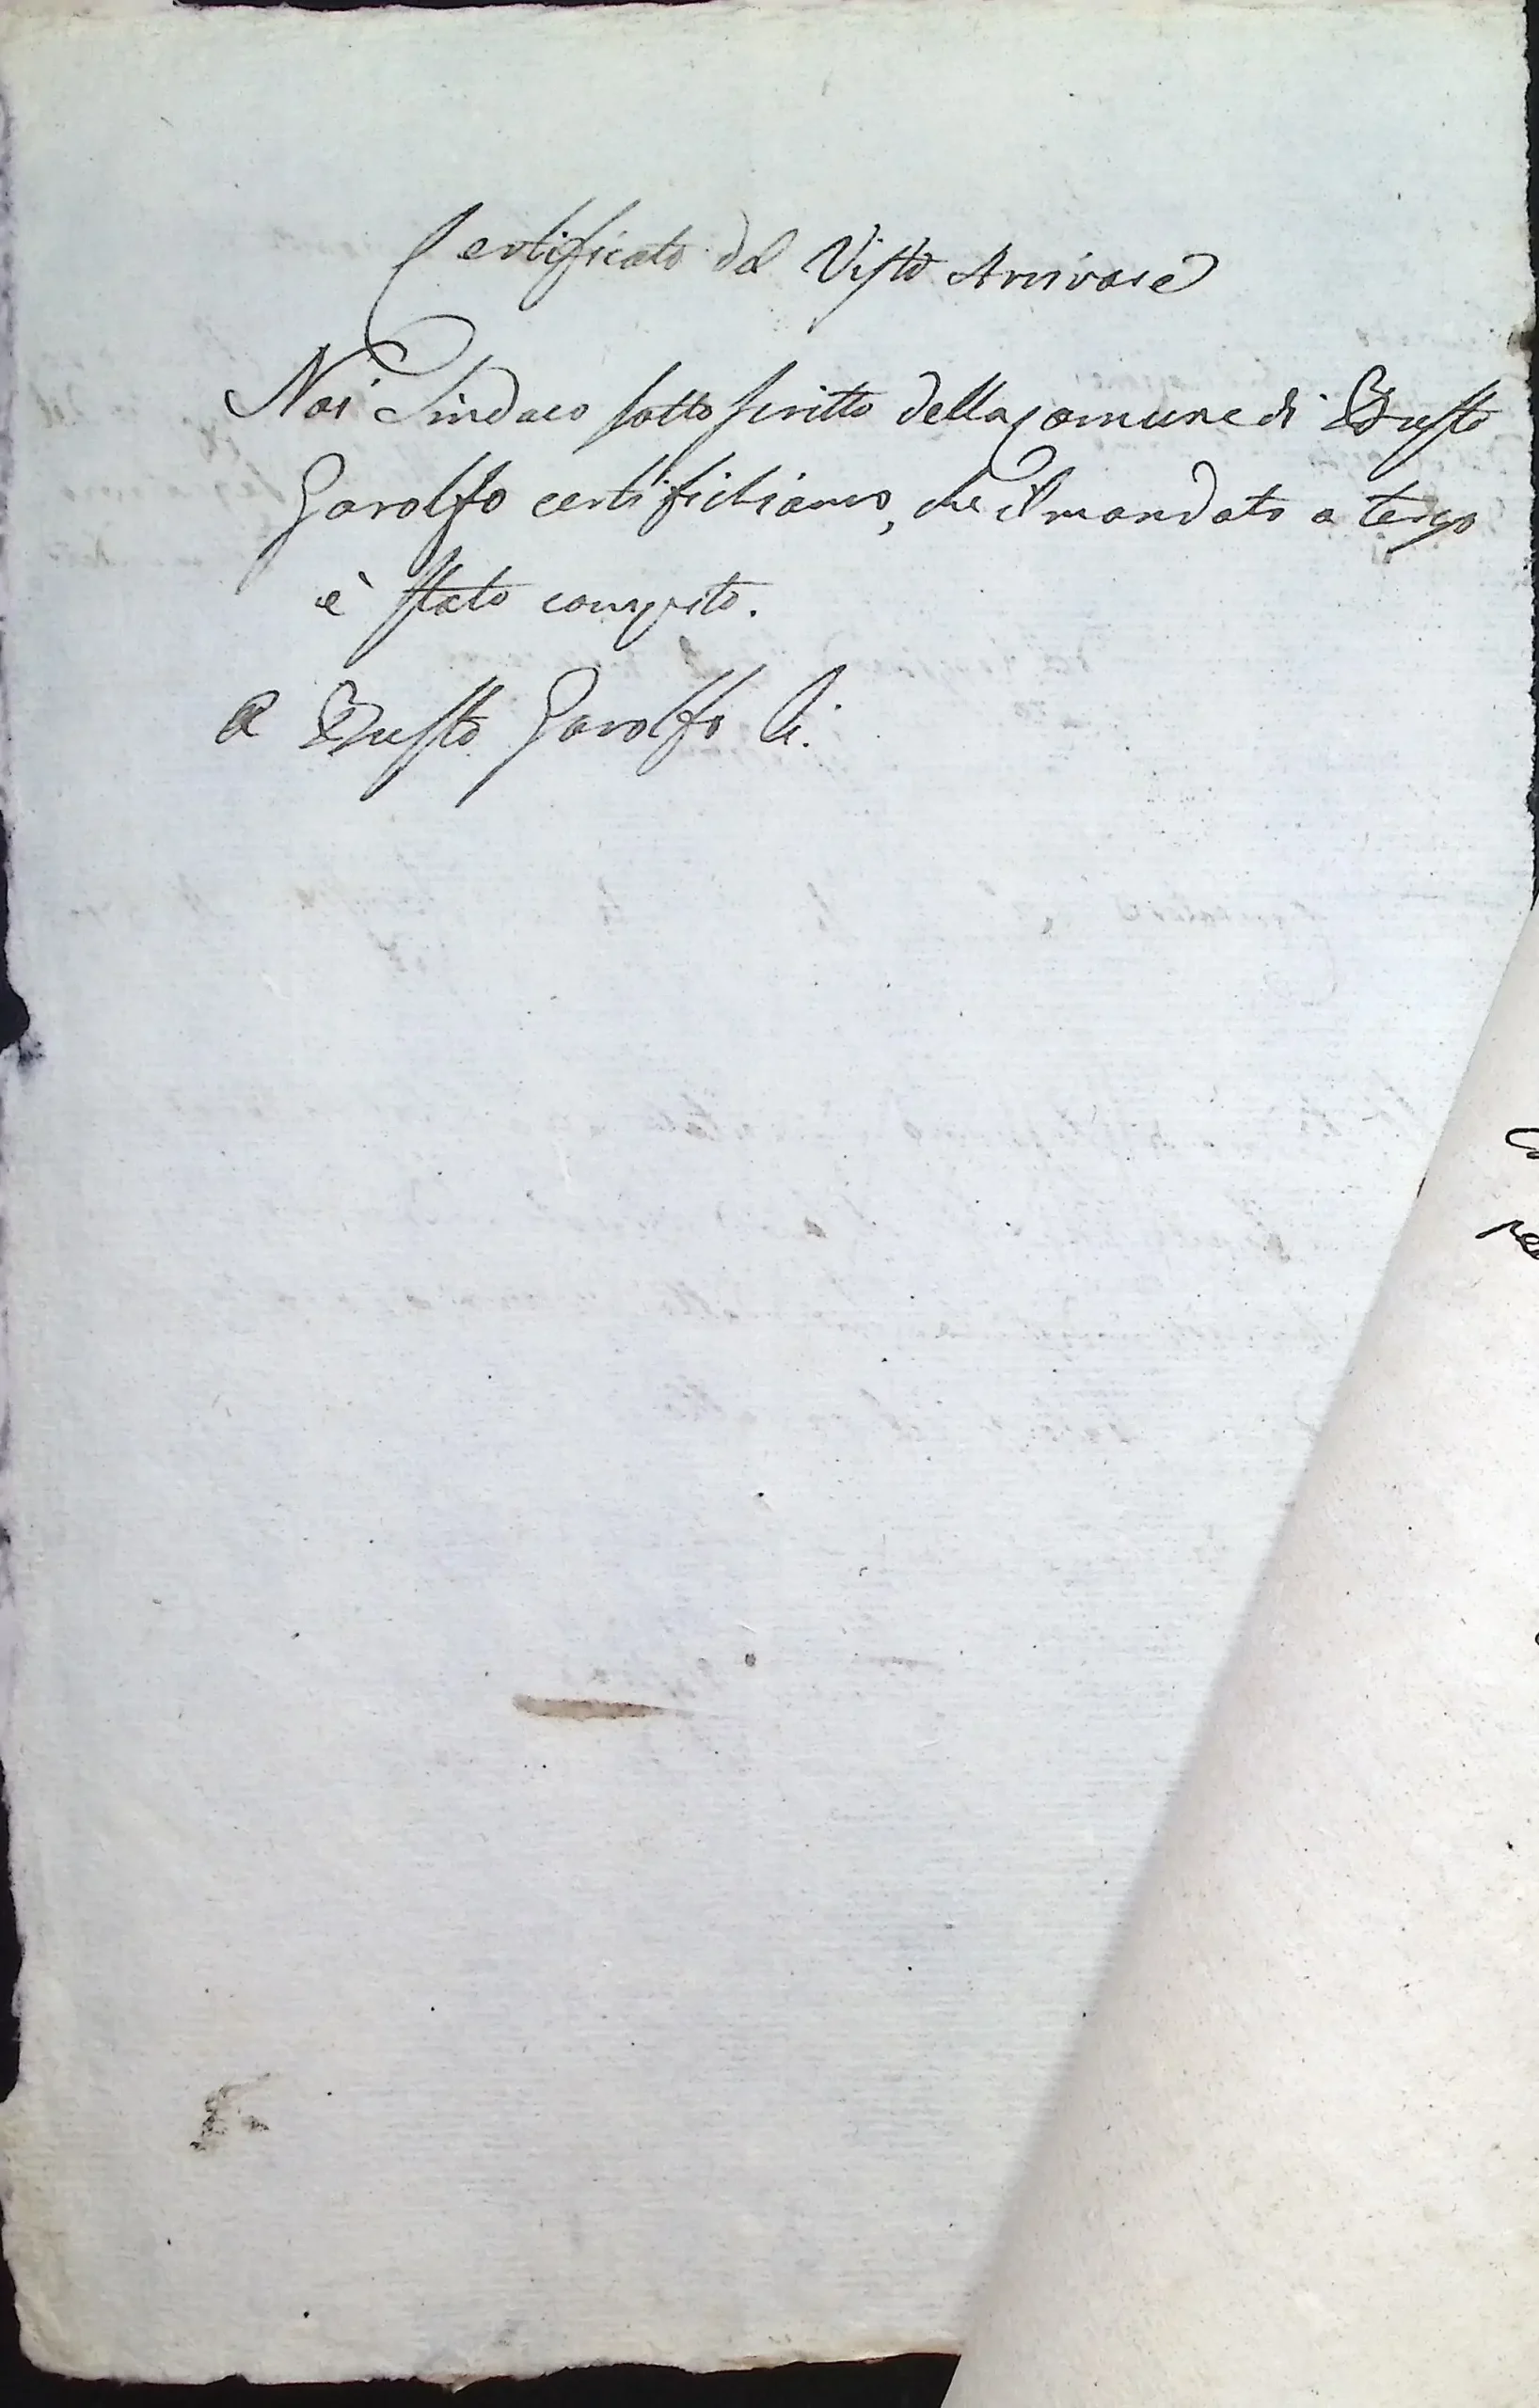 Certificato del Visto Arrivare
Noi Sindaco sottoscritto della comune di Busto
Garolfo certifichiamo, che il mandato a tergo
è stato compito.
A Busto Garolfo li.